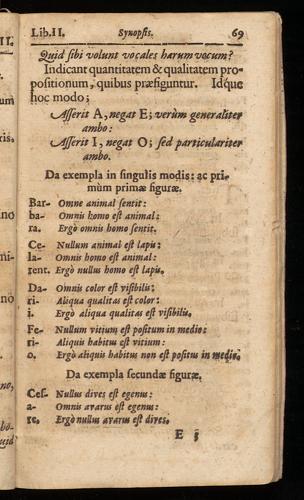 Lib. II. Synopsis. 69
Quid sibi volunt vocales harum vocum?
Indicant quantitatem & qualitatem pro-
positionum, quibus præfiguntur. Idq́ue
hoc modo;
Asserit A, negat E; verùm generaliter
ambo:
Asserit I, negat O; sed particulariter
ambo.
Da exempla in singulis modis: ac pri-
mùm primæ figuræ.
Bar- Omne animal sentit:
ba- Omnis homo est animal:
ra. Ergò omnis homo sentit.
Ce- Nullum animal est lapis:
la- Omnis homo est animal:
rent. Ergò nullus homo est lapis.
Da- Omnis color est visibilis:
ri- Aliqua qualitas est color:
i. Ergò aliqua qualitas est visibilis.
Fe- Nullum vitium est positum in medio:
ri- Aliquis habitus est vitium:
o. Ergò aliquis habitus non est positus in medio.
Da exempla secundæ figuræ.
Ces- Nullus dives est egenus:
a- Omnis avarus est egenus:
re. Ergò nullus avarus est dives.
E 5